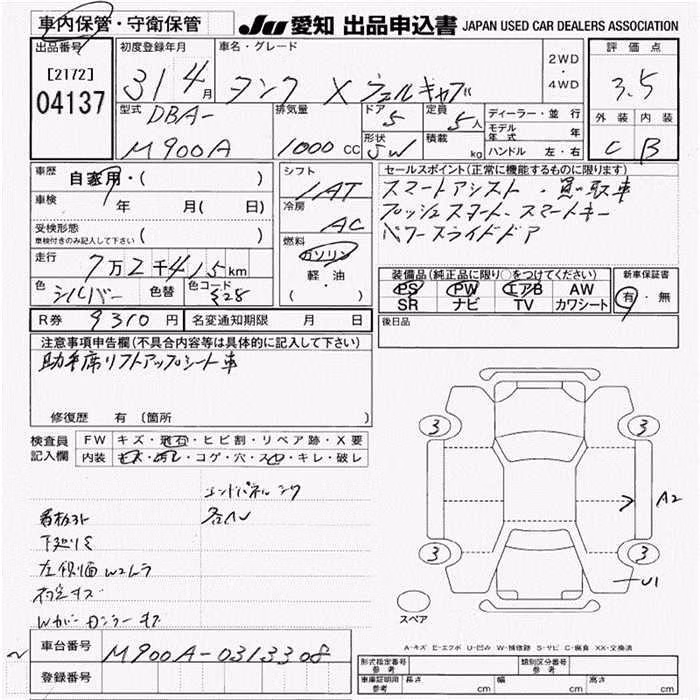 車内保管・守衛保管 JU 愛知 出品申込書 JAPAN USED CAR DEALERS ASSOCIATION
出品番号 初度登録年月 車名・グレード 評価点
[2172] 31年 4月 タンク X ヴェルキャブ 2WD・4WD 3.5
04137
型式 排気量 ドア 定員 ディーラー・並行 外装 内装
DBA- 5 5人 モデル年式 年 C B
M900A 1000cc 形状 5W 積載 kg ハンドル 左・右
車歴 自家用・( ) シフト セールスポイント(正常に機能するものに限ります)
1AT スマートアシスト・買い取車
車検 年 月( 日) 冷房 プッシュスタート、スマートキー
受検形態 車検付きのみ記入して下さい ( ) AC パワースライドドア
走行 7万2千415km 燃料 ガソリン
軽・油
( )
装備品(純正品に限り○をつけてください) 新車保証書
色 シルバー 色替 色コード S28 PS PW エアB AW 有・無
SR ナビ TV カワシート
R券 9310円 名変通知期限 月 日 後日品
注意事項申告欄(不具合内容等は具体的に記入して下さい)
助手席リフトアップシート車
修復歴 有(箇所 )
検査員記入欄 FW キズ・飛石・ヒビ割・リペア跡・X要
内装 キズ・汚レ・コゲ・穴・スレ・キレ・破レ
エンドパネル
看板跡 各AU
下廻りS
左側面W2ムラ
3 3
A2
3 3
U1
スペア
A-キズ E-エクボ U-凹み W-補修跡 S-サビ C-腐食 XX-交換済
車台番号 M900A-0313308
登録番号
型式指定番号 参考 類別区分番号 参考
車庫証明用 参考 長さ cm 幅 cm 高さ cm